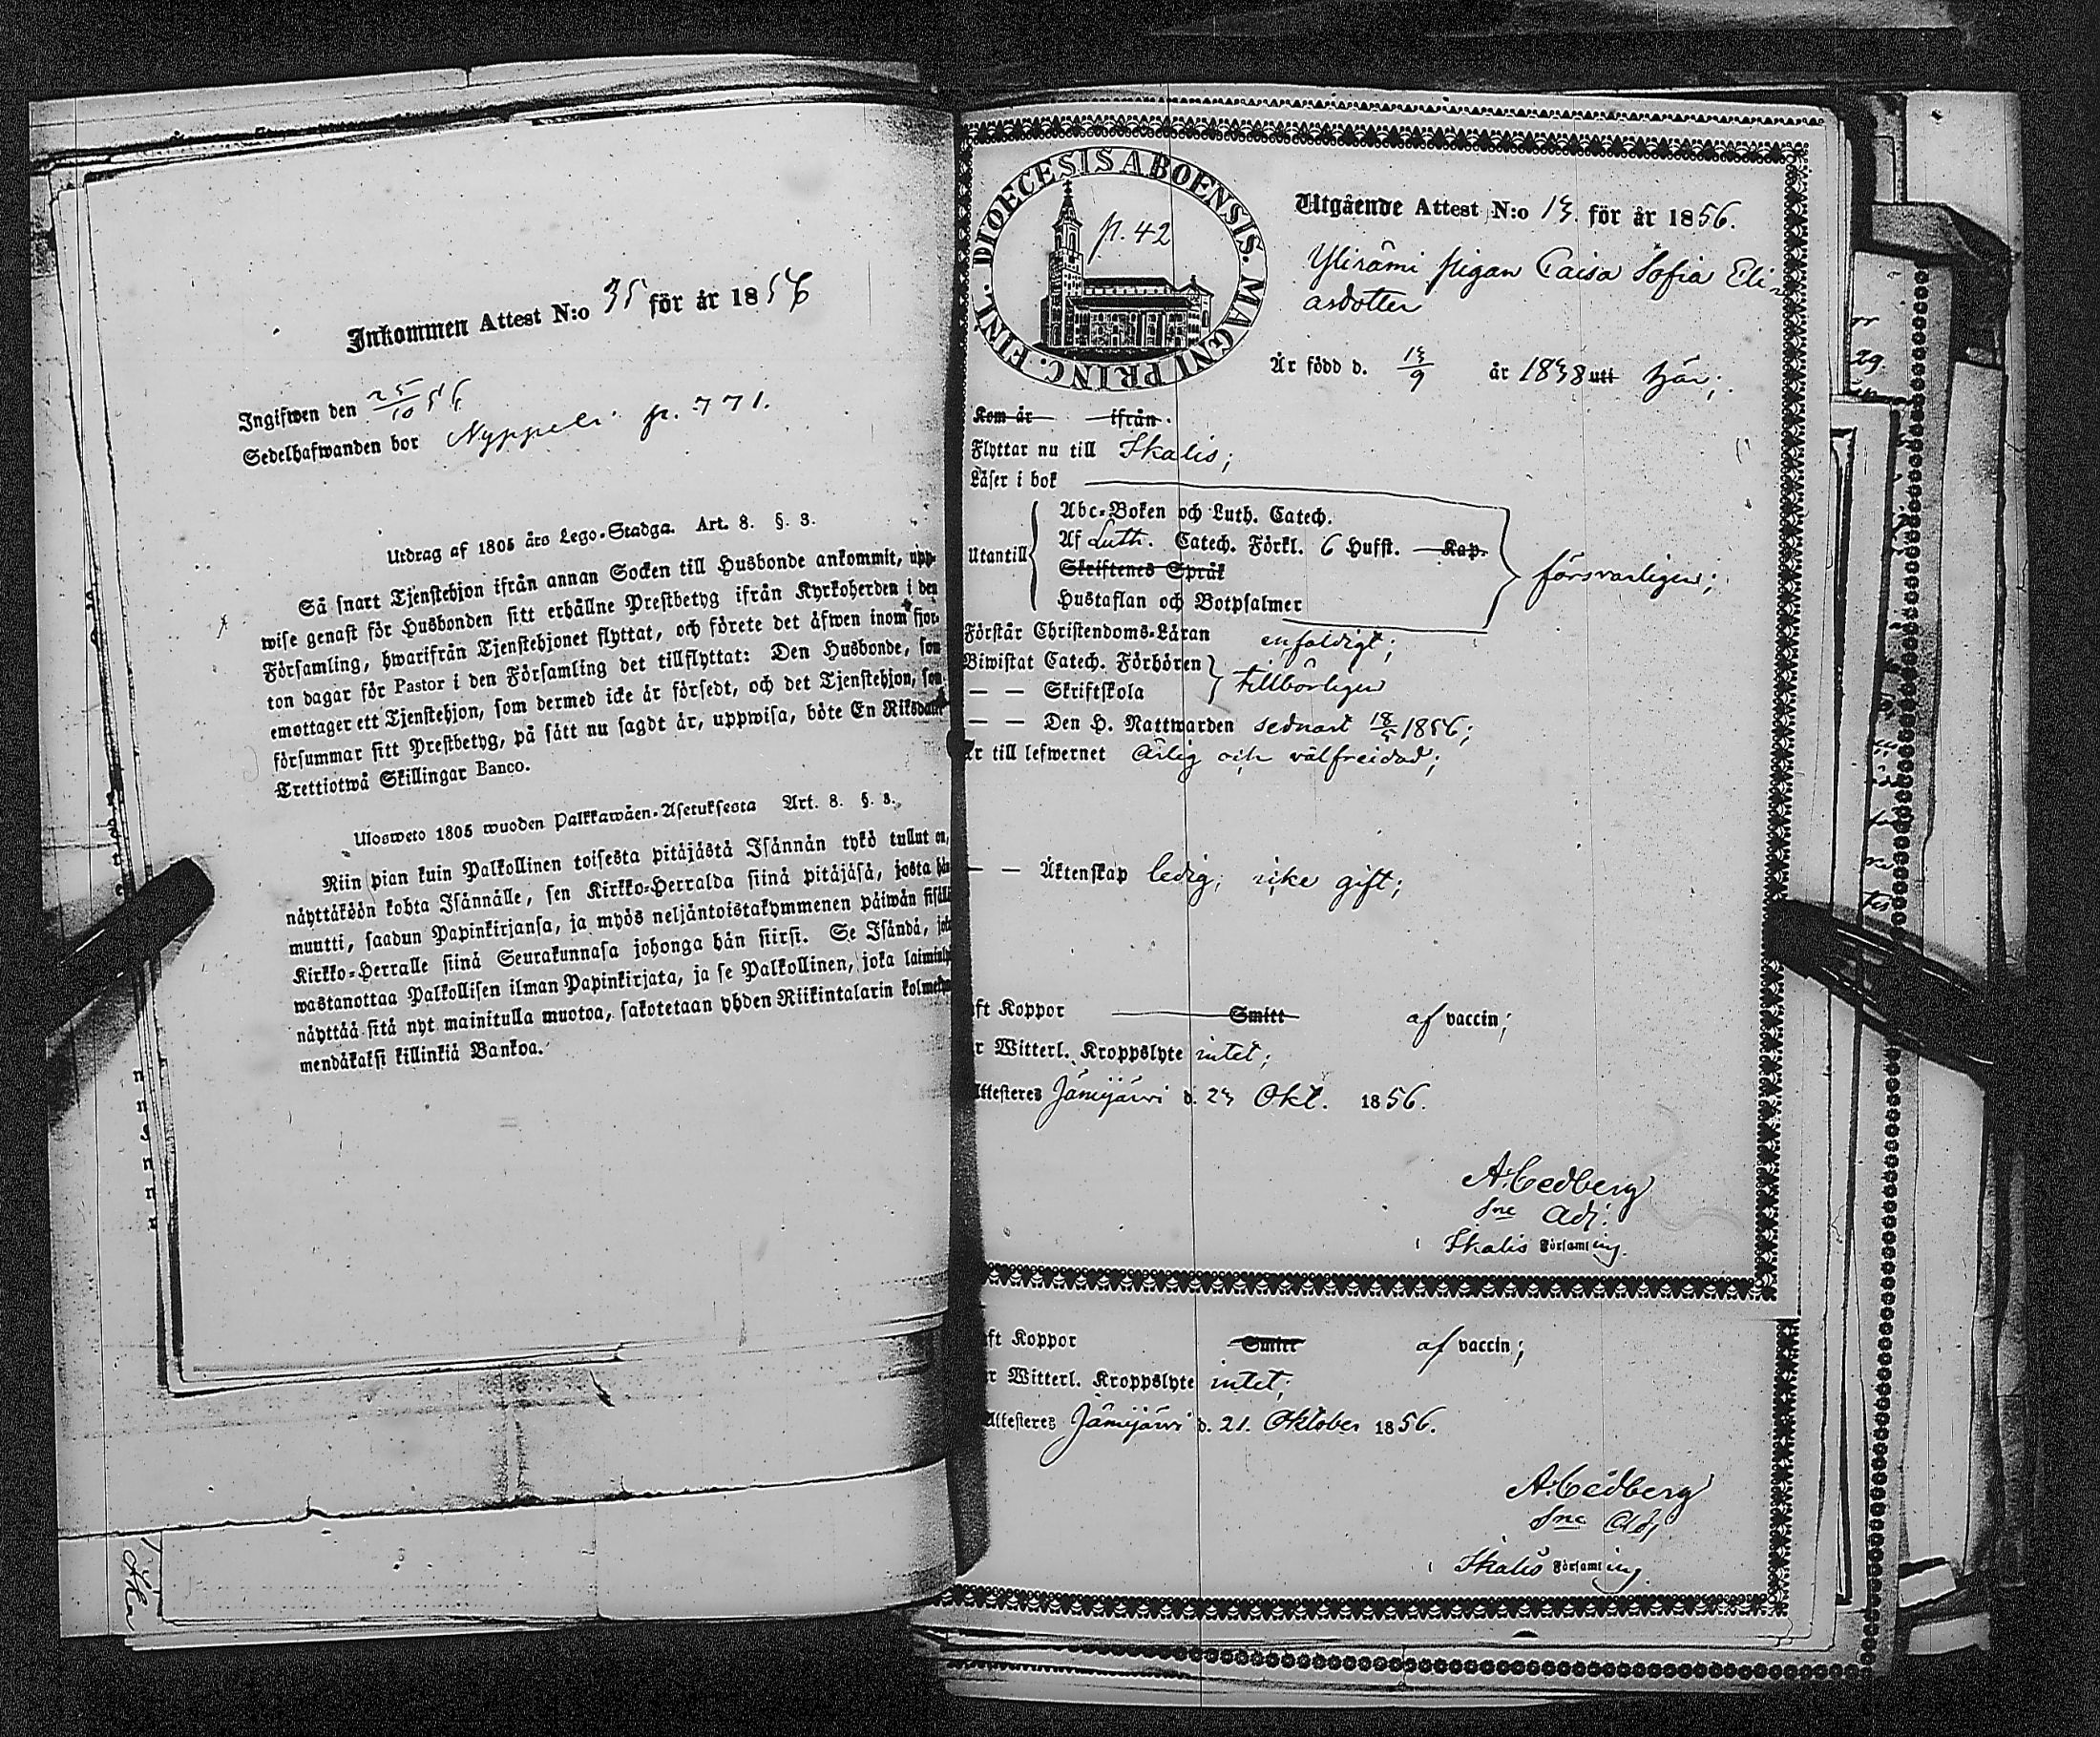 Inkommen Attest N:o 35 för år 1856
Ingifwen den 25/10 56
Sedelhafwanden bor Nyppeli p. 771.
Utdrag af 1805 års Lego-Stadga. Art. 8. §. 3.
Så snart Tjenstehjon ifrån annan Socken till Husbonde ankommit, upp-
wise genast för Husbonden sitt erhållne Prestbetyg ifrån Kyrkoherden i den
Församling, hwarifrån Tjenstehjonet flyttat, och förete det äfwen inom fjor-
ton dagar för Pastor i den Församling det tillflyttat: Den Husbonde, som
emottager ett Tjenstehjon, som dermed icke är försedt, och det Tjenstehjon, som
försummar sitt Prestbetyg, på sätt nu sagdt är, uppwisa, böte En Riksdaler
Trettiotwå Skillingar Banco.
Ulosweto 1805 wuoden Palkkawäen-Asetuksesta Art. 8. §. 3.
Niin pian kuin Palkollinen toisesta pitäjästä Isännän tykö tullut on,
näyttäköön kohta Isännälle, sen Kirkko-Herralda siinä pitäjäsä, josta hän
muutti, saadun Papinkirjansa, ja myös neljäntoistakymmenen päiwän sisällä
Kirkko-Herralle siinä Seurakunnasa johonga hän siirsi. Se Isändä, joka
wastanottaa Palkollisen ilman Papinkirjata, ja se Palkollinen, joka laiminlyö
näyttää sitä nyt mainitulla muotoa, sakotetaan yhden Riikintalarin kolmekym-
mendäkaksi killinkiä Bankoa.
DIOECESIS ABOENSIS. MAGNI PRINC. FINL.
p. 42
Utgående Attest N:o 13. för år 1856.
Ylirämi pigan Caisa Sofia Eli-
asdotter
Är född d. 13/9 år 1838 utt här;
Kom år ifrån
Flyttar nu till Ikalis;
Läser i bok
Abc-Boken och Luth. Catech.
Utantill Af Luth. Catech. Förkl. 6 Hufst. Kap.
Skriftenes Språk försvarligen;
Hustaflan och Botpsalmer
Förstår Christendoms-Läran enfaldigt;
Biwistat Catech. Förhören
— — Skriftskola tillbörligen
— — Den H. Nattwarden sednast 18/5 1856;
är till lefwernet Ärlig och välfreidad;
— — Äktenskap ledig, icke gift;
ft Koppor Smitt af vaccin;
r Witterl. Kroppslyte intet;
Attesteres Jämijärvi d. 23 Okt. 1856.
A. Cedberg
Sne Adj.
i Ikalis Församling.
ft Koppor Smitt af vaccin;
r Witterl. Kroppslyte intet;
Attesteres Jämijärvi d. 21. Oktober 1856.
A. Cedberg
Sne Adj
i Ikalis Församling.